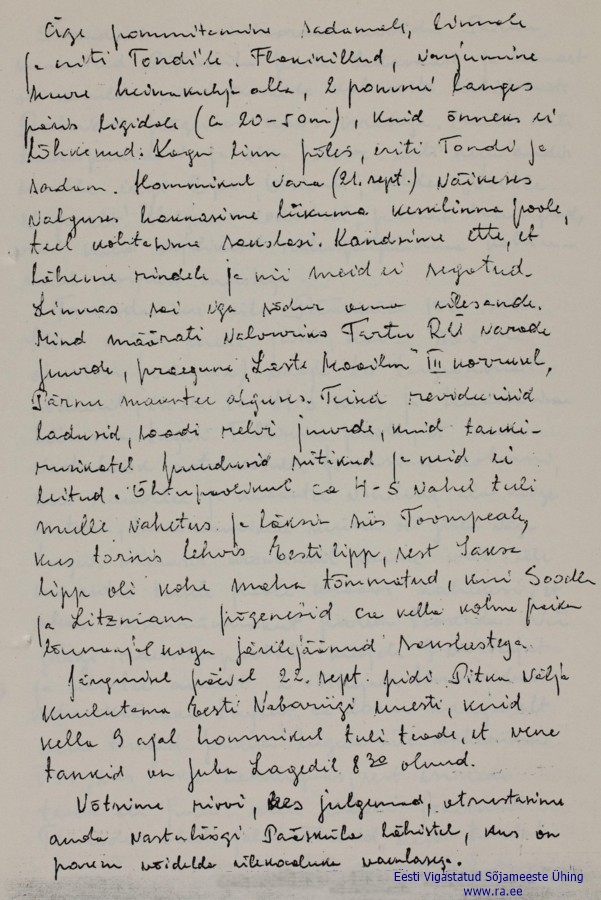 Äge pommitamine sadamale, linnale
ja eriti Tondi'le. Flakikillud, varjumine
suure heinakuhja alla, 2 pommi langes
päris ligidale (ca 20-50m), kuid õnneks ei
lõhkenud. Kogu linn põles, eriti Tondi ja
sadam. Hommikul vara (21. sept.) väikeses
valguses hakkasime liikuma kesklinna poole,
teel kohtasime sakslasi. Kandsime ette, et
läheme rindele ja nii meid ei segatud.
Linnas sai iga sõdur oma ülesande.
Mind määrati valvuriks Tartu RÜ varade
juurde, praegune "Laste Maailm" III korrusel,
Pärnu maantee alguses. Teised revideerisid
ladusid, saadi relvi juurde, kuid tanki-
rusikatel puudusid sütikud ja neid ei
leitud. Õhtupoolikul ca 4-5 vahel tuli
mulle vahetus ja läksin siis Toompeale,
kus tornis lehvis Eesti lipp, sest Saksa
lipp oli kohe maha tõmmatud, kui Soodla
ja Litzmann põgenesid ca kella kolme paiku
lõunaajal kogu järelejäänud sakslastega.
Järgmisel päeval 22. sept. pidi Pitka välja
kuulutama Eesti Vabariigi uuesti, kuid
kella 9 ajal hommikul tuli teade, et vene
tankid on juba Lagedil 8 30 olnud.
Võtsime rivvi, kes julgemad, otsustasime
anda vastulöögi Pääsküla lähistel, kus on
parem võidelda ülekaaluka vaenlasega.
Eesti Vigastatud Sõjameeste Ühing
www.ra.ee